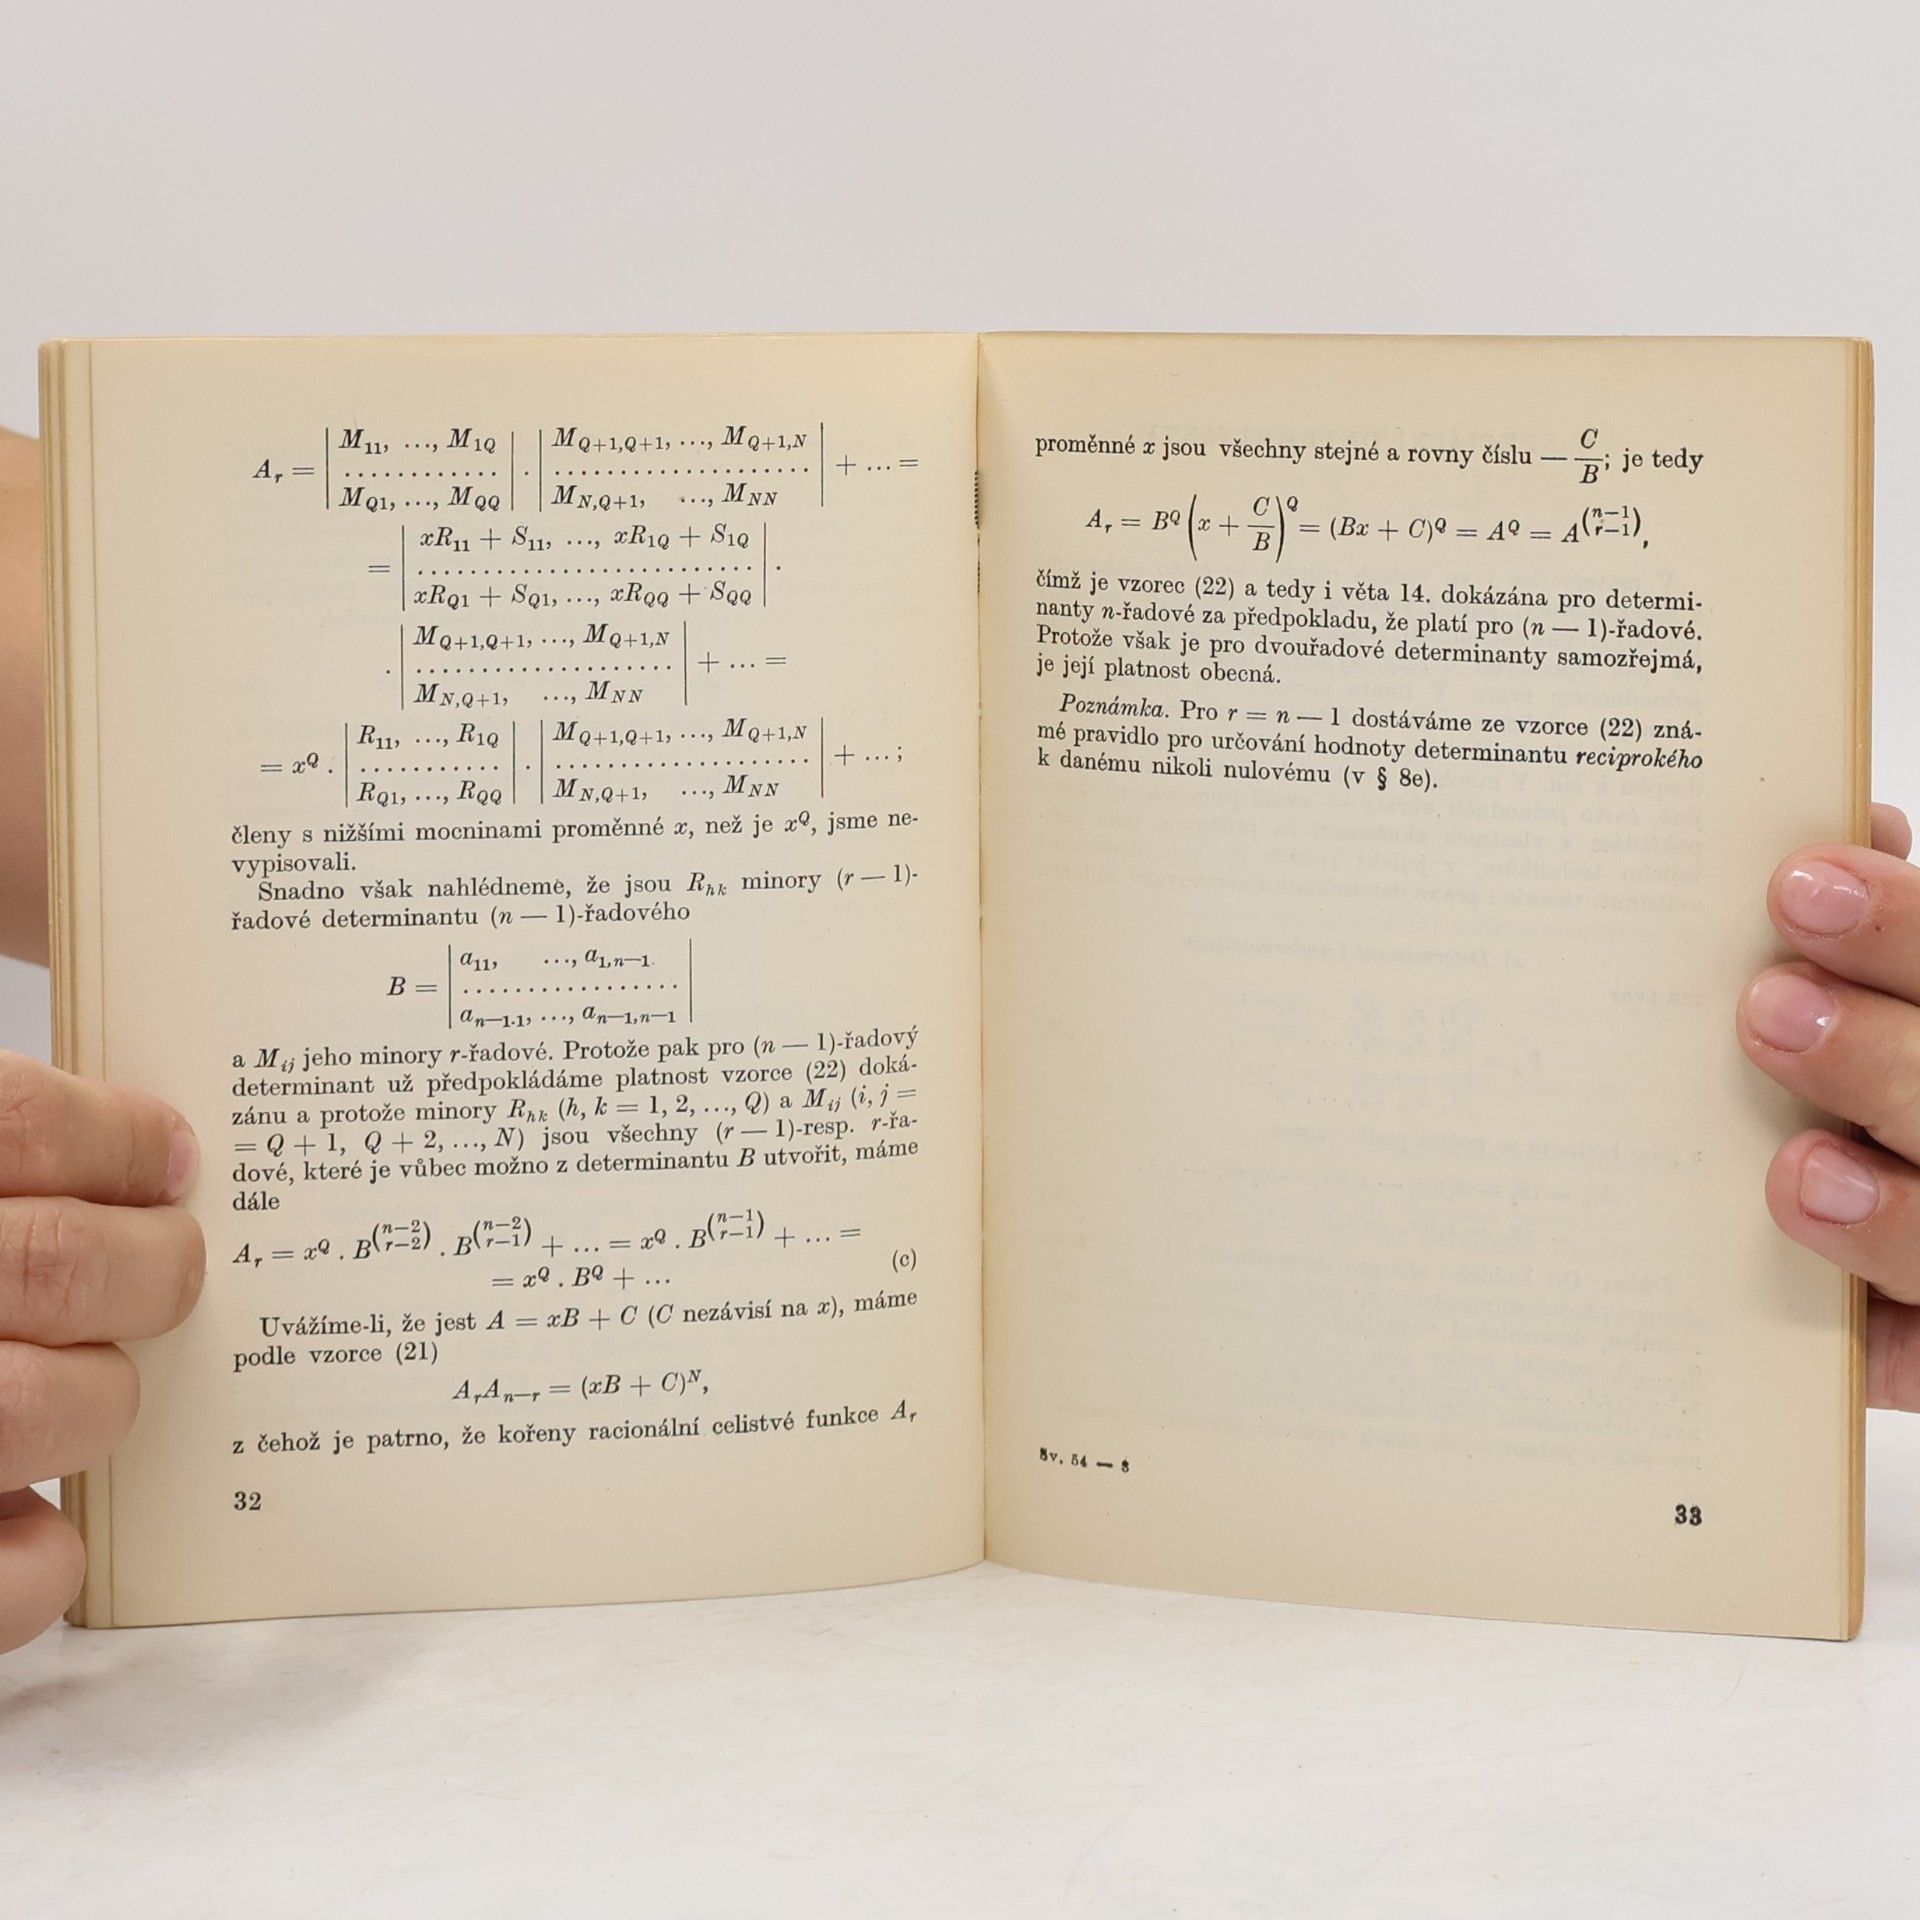 A_r = | M_{11}, ..., M_{1Q} | . | M_{Q+1,Q+1}, ..., M_{Q+1,N} | + ... =
| ............ | . | .................... |
| M_{Q1}, ..., M_{QQ} | | M_{N,Q+1}, ..., M_{NN} |
= | xR_{11} + S_{11}, ..., xR_{1Q} + S_{1Q} | .
| .......................... |
| xR_{Q1} + S_{Q1}, ..., xR_{QQ} + S_{QQ} |
. | M_{Q+1,Q+1}, ..., M_{Q+1,N} | + ... =
| .................... |
| M_{N,Q+1}, ..., M_{NN} |
= x^Q . | R_{11}, ..., R_{1Q} | . | M_{Q+1,Q+1}, ..., M_{Q+1,N} | + ... ;
| ........... | | .................... |
| R_{Q1}, ..., R_{QQ} | | M_{N,Q+1}, ..., M_{NN} |
členy s nižšími mocninami proměnné x, než je x^Q, jsme ne-
vypisovali.
Snadno však nahlédneme, že jsou R_{hk} minory (r — 1)-
řadové determinantu (n — 1)-řadového
B = | a_{11}, ..., a_{1,n—1} |
| ................. |
| a_{n—1.1}, ..., a_{n—1,n—1} |
a M_{ij} jeho minory r-řadové. Protože pak pro (n — 1)-řadový
determinant už předpokládáme platnost vzorce (22) doká-
zánu a protože minory R_{hk} (h, k = 1, 2, ..., Q) a M_{ij} (i, j =
= Q + 1, Q + 2, ..., N) jsou všechny (r — 1)-resp. r-řa-
dové, které je vůbec možno z determinantu B utvořit, máme
dále
A_r = x^Q . B^{\binom{n—2}{r—2}} . B^{\binom{n—2}{r—1}} + ... = x^Q . B^{\binom{n—1}{r—1}} + ... =
= x^Q . B^Q + ... (c)
Uvážíme-li, že jest A = xB + C (C nezávisí na x), máme
podle vzorce (21)
A_r A_{n—r} = (xB + C)^N,
z čehož je patrno, že kořeny racionální celistvé funkce A_r
32
proměnné x jsou všechny stejné a rovny číslu — \frac{C}{B}; je tedy
A_r = B^Q (x + \frac{C}{B})^Q = (Bx + C)^Q = A^Q = A^{\binom{n—1}{r—1}},
čímž je vzorec (22) a tedy i věta 14. dokázána pro determi-
nanty n-řadové za předpokladu, že platí pro (n — 1)-řadové.
Protože však je pro dvouřadové determinanty samozřejmá,
je její platnost obecná.
Poznámka. Pro r = n — 1 dostáváme ze vzorce (22) zná-
mé pravidlo pro určování hodnoty determinantu reciprokého
k danému nikoli nulovému (v § 8e).
Sv. 54 — 3
33